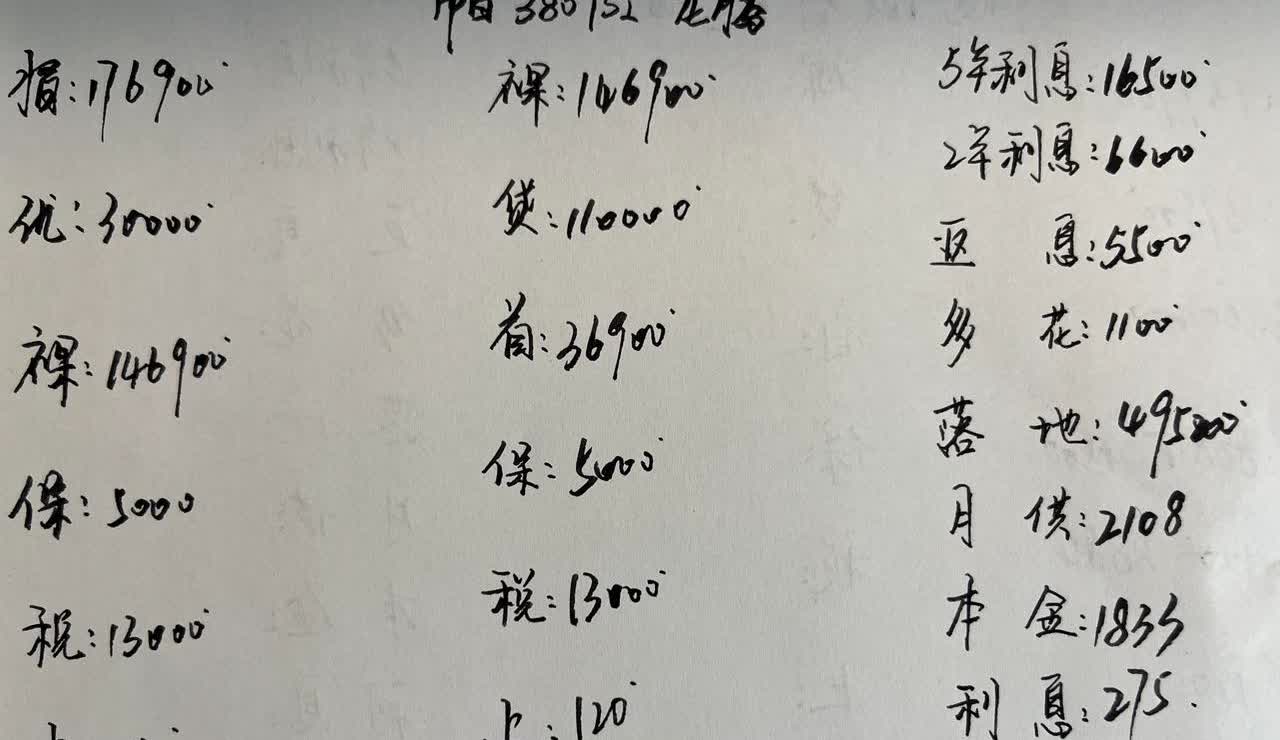 380
指:176900
优:30000
裸:146900
保:5000
税:13000
裸:146900
贷:110000
首:36900
保:5000
税:13000
上:120
5年利息:16500
2年利息:6600
返息:5500
多花:1100
落地:495200
月供:2108
本金:1833
利息:275.